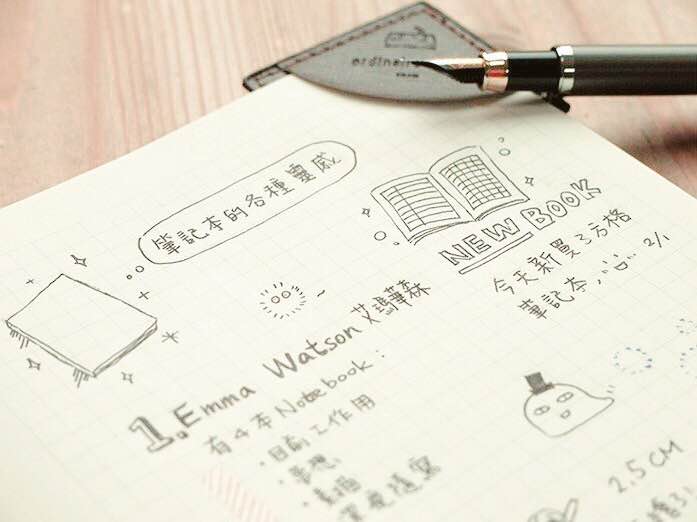 筆記本的各種靈感
NEW BOOK
今天新買了方格
筆記本 2/1
1. Emma Watson 艾瑪華森
有4本Notebook:
・目前工作用
・夢想
2.5CM